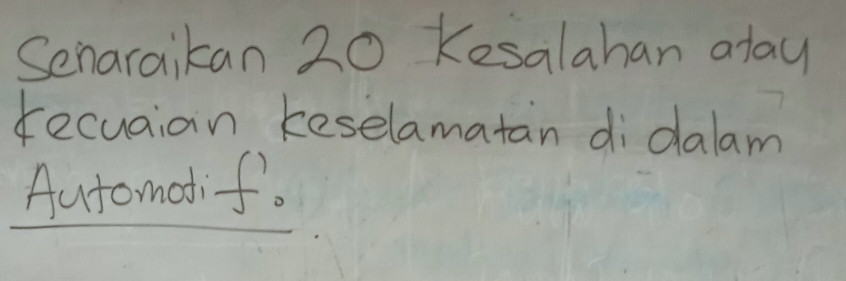 Senaraikan 20 Kesalahan atau
kecuaian keselamatan di dalam
Automotif.